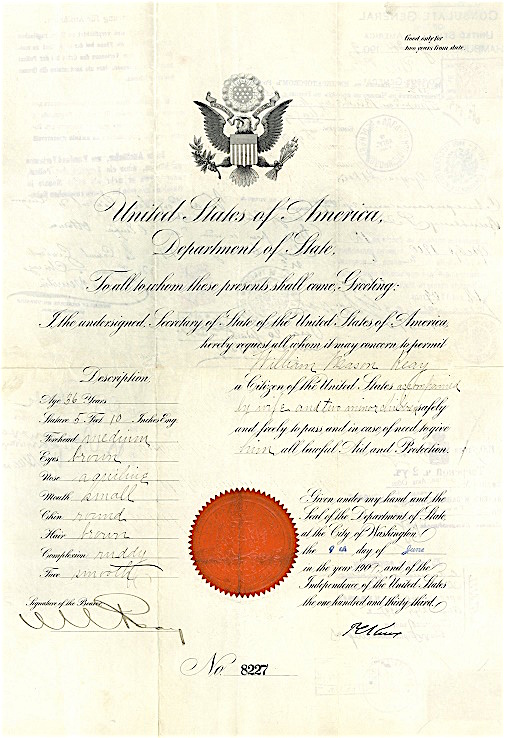 Good only for
two years from date.
United States of America,
Department of State,
To all to whom these presents shall come, Greeting:
I, the undersigned, Secretary of State of the United States of America,
hereby request all whom it may concern to permit
William Mason Reay
a Citizen of the United States accompanied
by wife and two minor children safely
and freely to pass and in case of need to give
him all lawful Aid and Protection.
Description.
Age 36 Years
Stature 5 Feet 10 Inches Eng.
Forehead medium
Eyes brown
Nose aquiline
Mouth small
Chin round
Hair brown
Complexion ruddy
Face smooth
Signature of the Bearer
Given under my hand and the
Seal of the Department of State,
at the City of Washington
the 9th day of June
in the year 190 and of the
Independence of the United States
the one hundred and thirty third.
P C Knox
No. 8227